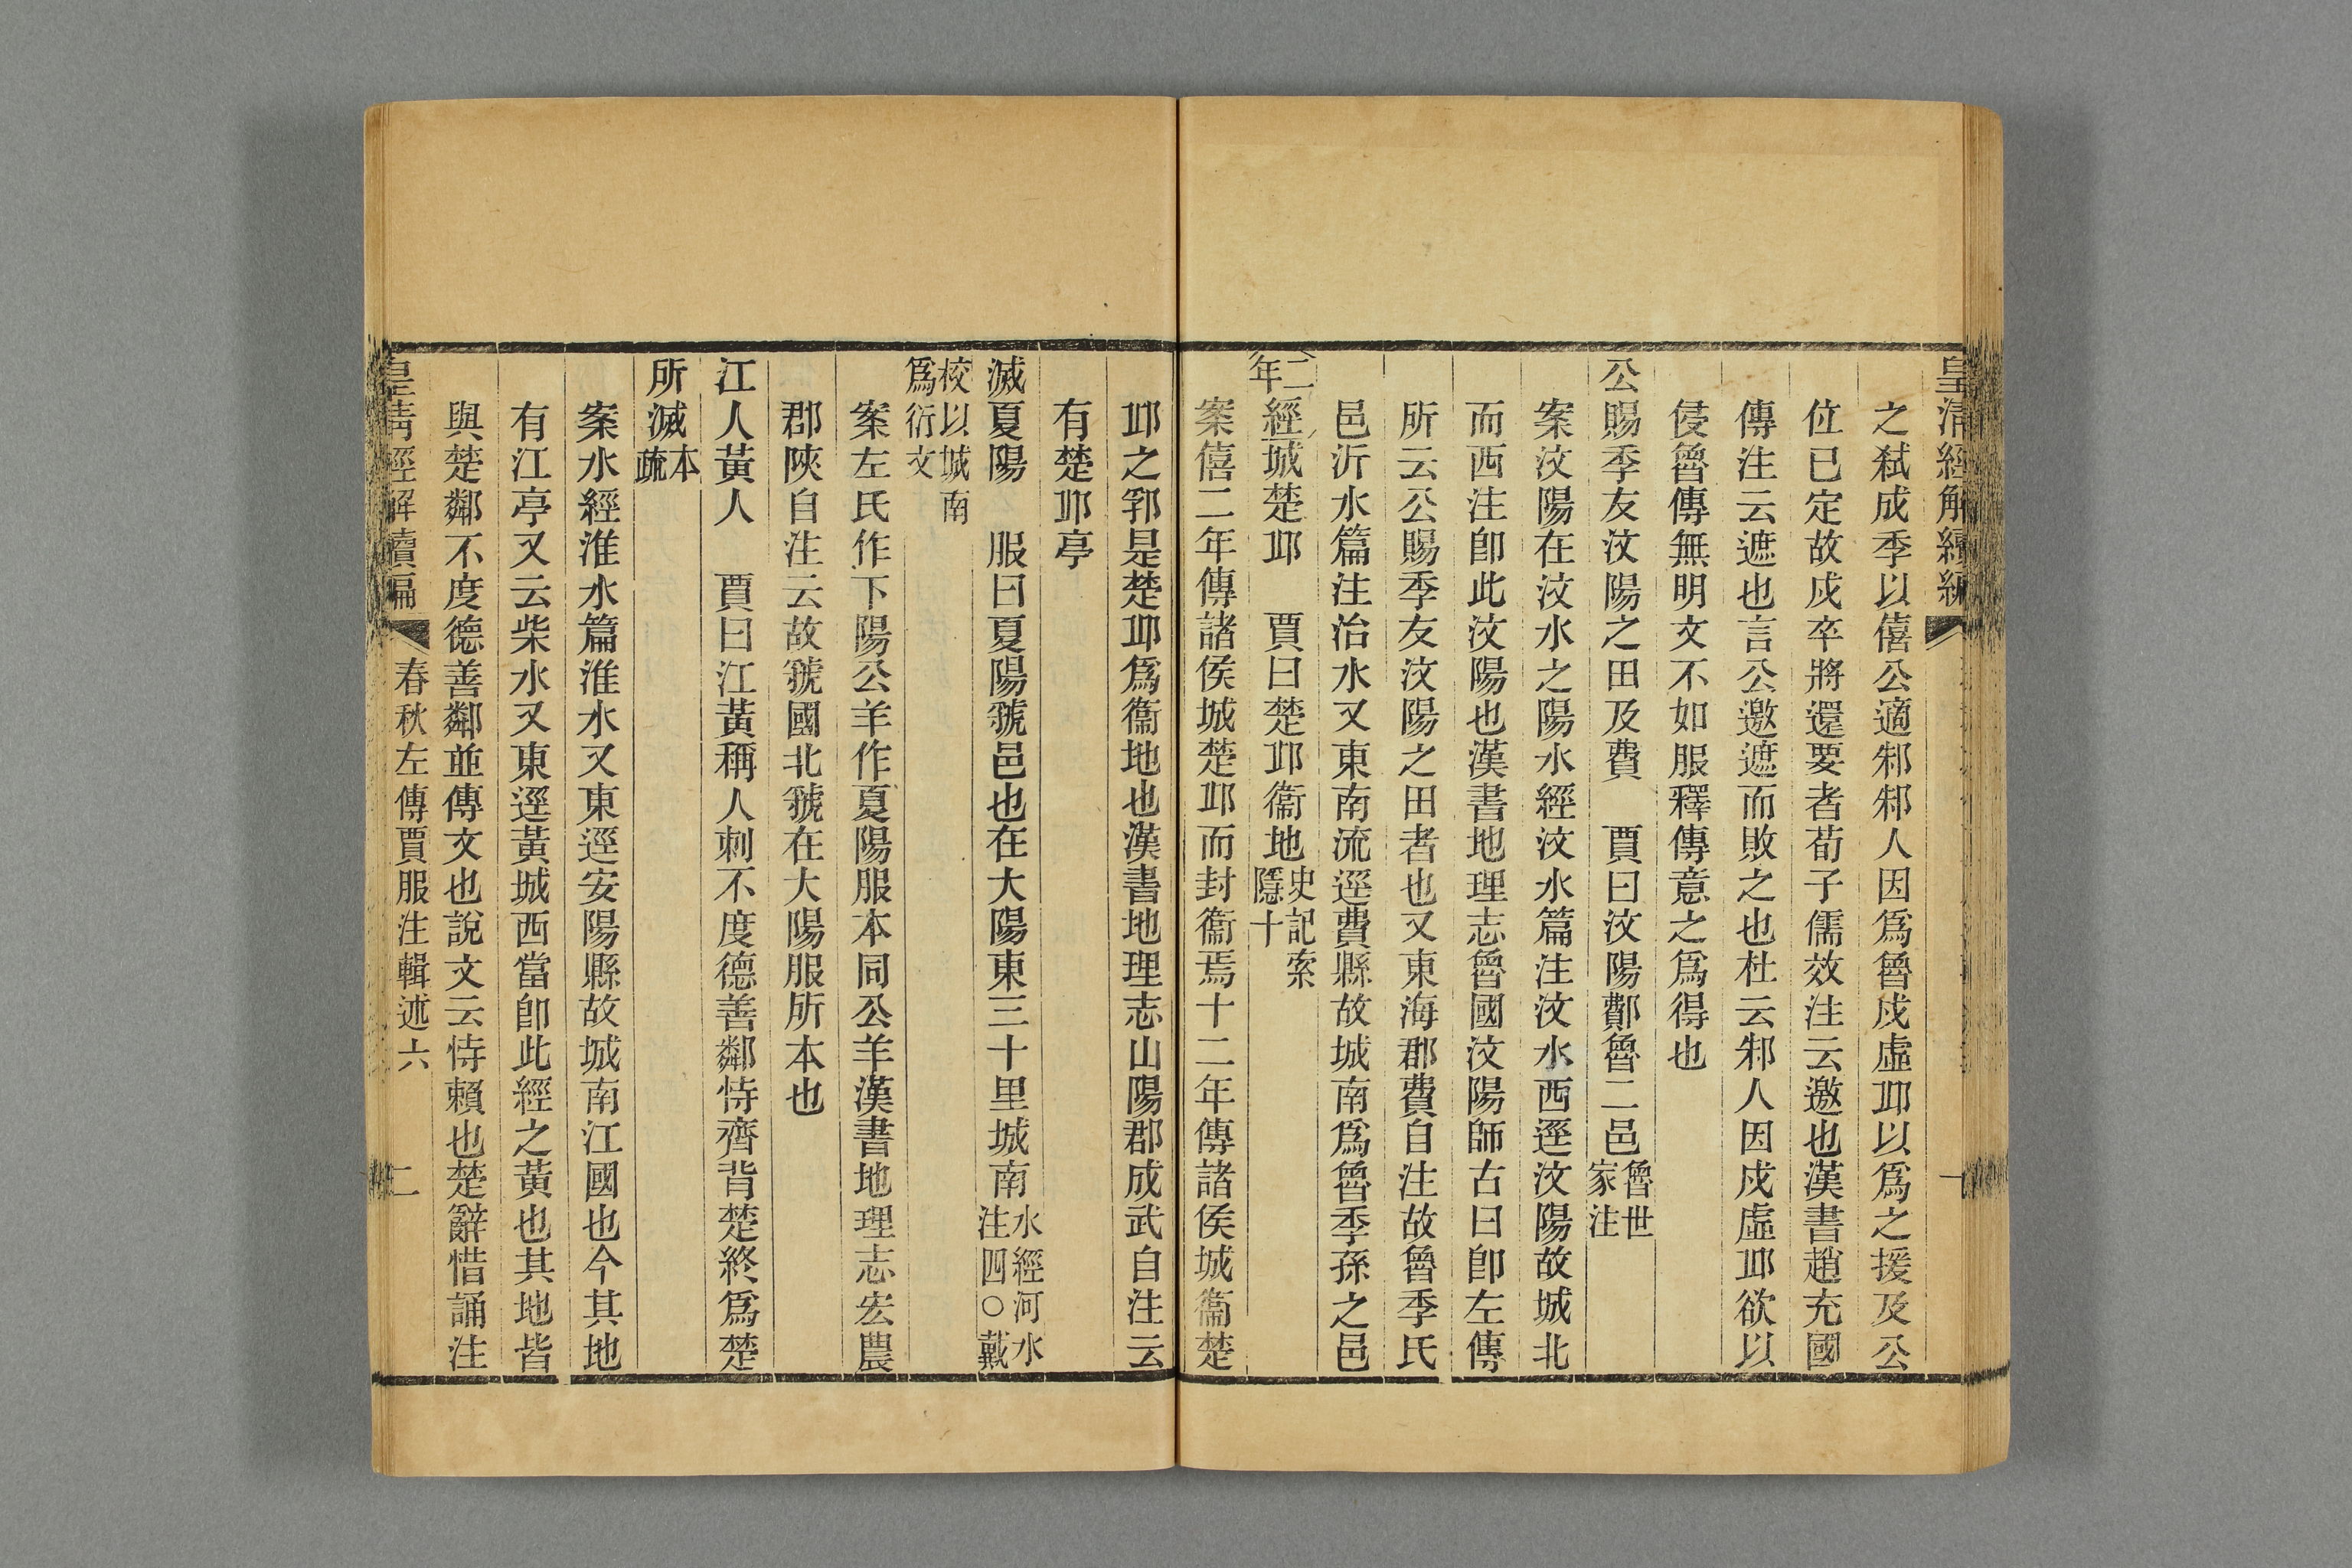 皇清經解續編
一
之弑成季以僖公適邾邾人因爲魯戍虛丠以爲之援及公
位已定故戍卒將還要者荀子儒效注云邀也漢書趙充國
傳注云遮也言公邀遮而敗之也杜云邾人因戍虛丠欲以
侵魯傳無明文不如服釋傳意之爲得也
公賜季友汶陽之田及費　賈曰汶陽鄪魯二邑魯世家注
案汶陽在汶水之陽水經汶水篇注汶水西逕汶陽故城北
而西注卽此汶陽也漢書地理志魯國汶陽師古曰卽左傳
所云公賜季友汶陽之田者也又東海郡費自注故魯季氏
邑沂水篇注治水又東南流逕費縣故城南爲魯季孫之邑
二年經城楚丠　賈曰楚丠衞地史記索隱十
案僖二年傳諸侯城楚丠而封衞焉十二年傳諸侯城衞楚
丠之郛是楚丠爲衞地也漢書地理志山陽郡成武自注云
有楚丠亭
滅夏陽　服曰夏陽虢邑也在大陽東三十里城南水經河水注四○戴
校以城南爲衍文
案左氏作下陽公羊作夏陽服本同公羊漢書地理志宏農
郡陝自注云故虢國北虢在大陽服所本也
江人黃人　賈曰江黃稱人刺不度德善鄰恃齊背楚終爲楚
所滅本疏
案水經淮水篇淮水又東逕安陽縣故城南江國也今其地
有江亭又云柴水又東逕黃城西當卽此經之黃也其地皆
與楚鄰不度德善鄰並傳文也說文云恃賴也楚辭惜誦注
皇清經解續編
春秋左傳賈服注輯述六
二